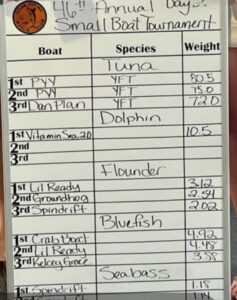 46th Annual Days!
Small Boat Tournament
Boat Species Weight
Tuna
1st PYY YFT 80.5
2nd PYY YFT 75.0
3rd Dan Plan YFT 72.0
Dolphin
1st Vitamin Sea 2.0 10.5
2nd
3rd
Flounder
1st Lil Ready 3.12
2nd Groundhog 2.54
3rd Spindrift 2.02
Bluefish
1st Crab Boat 4.92
2nd Lil Ready 4.48
3rd Kelcey Grace 3.88
Seabass
1st Spindrift 1.15